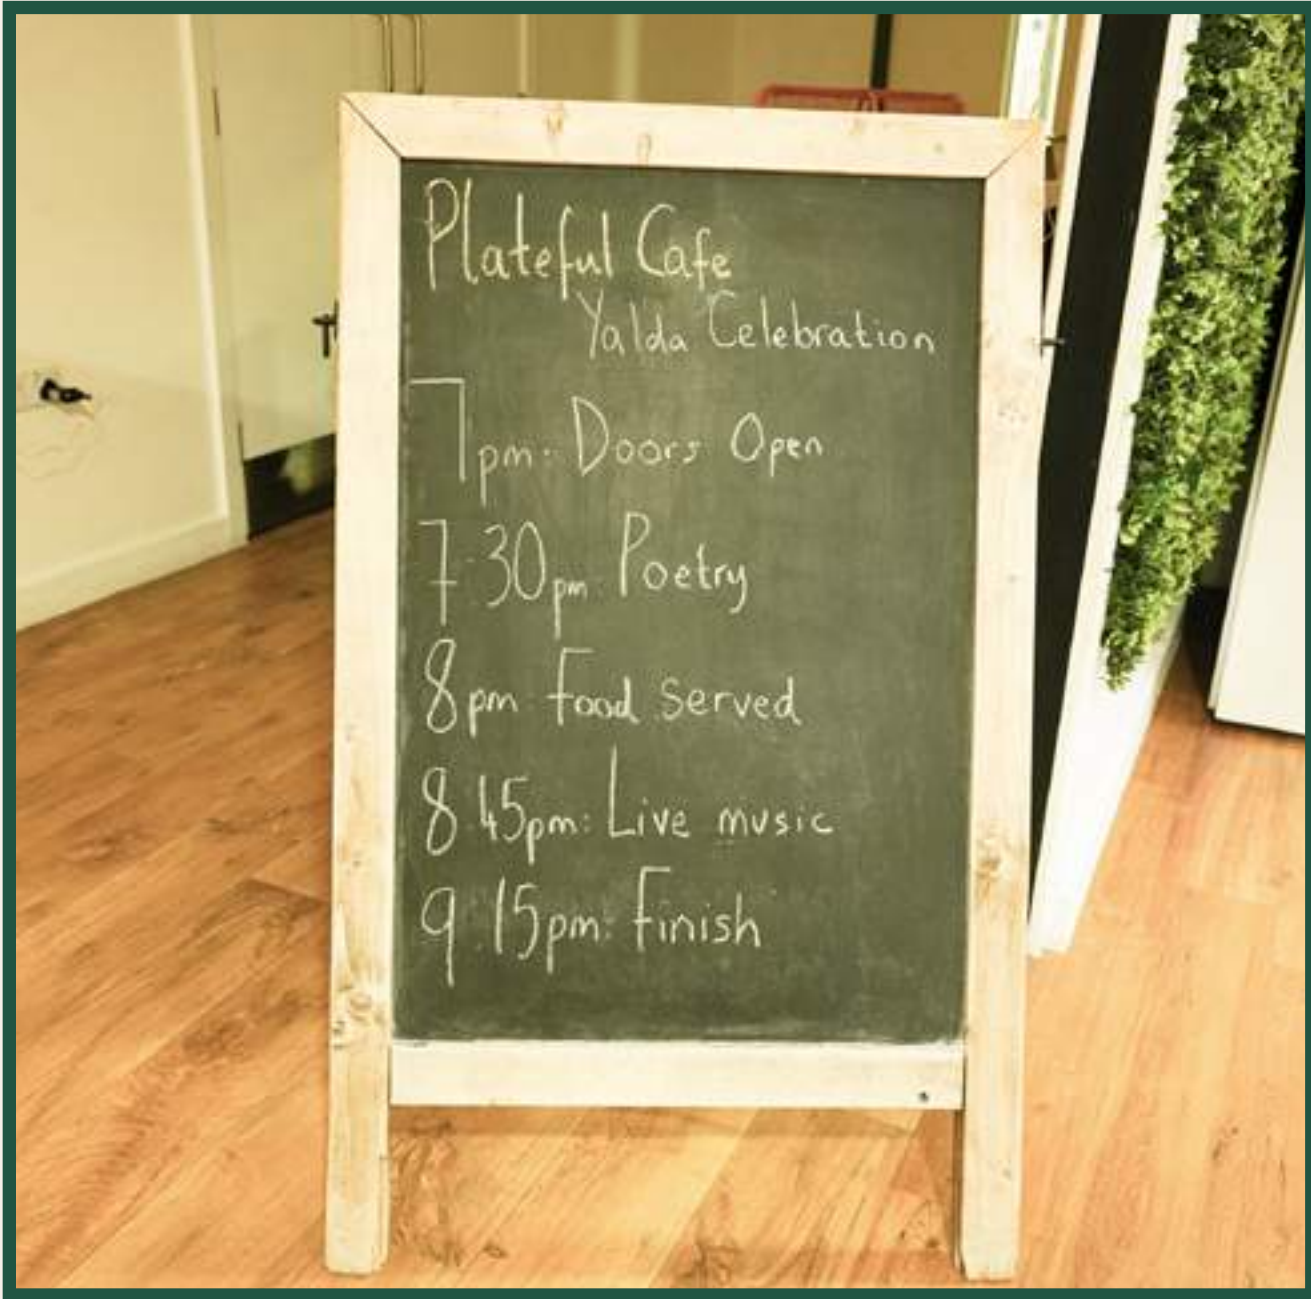 Plateful Cafe
Yalda Celebration
7pm: Doors Open
7:30pm: Poetry
8pm Food Served
8:45pm: Live music
9:15pm: Finish